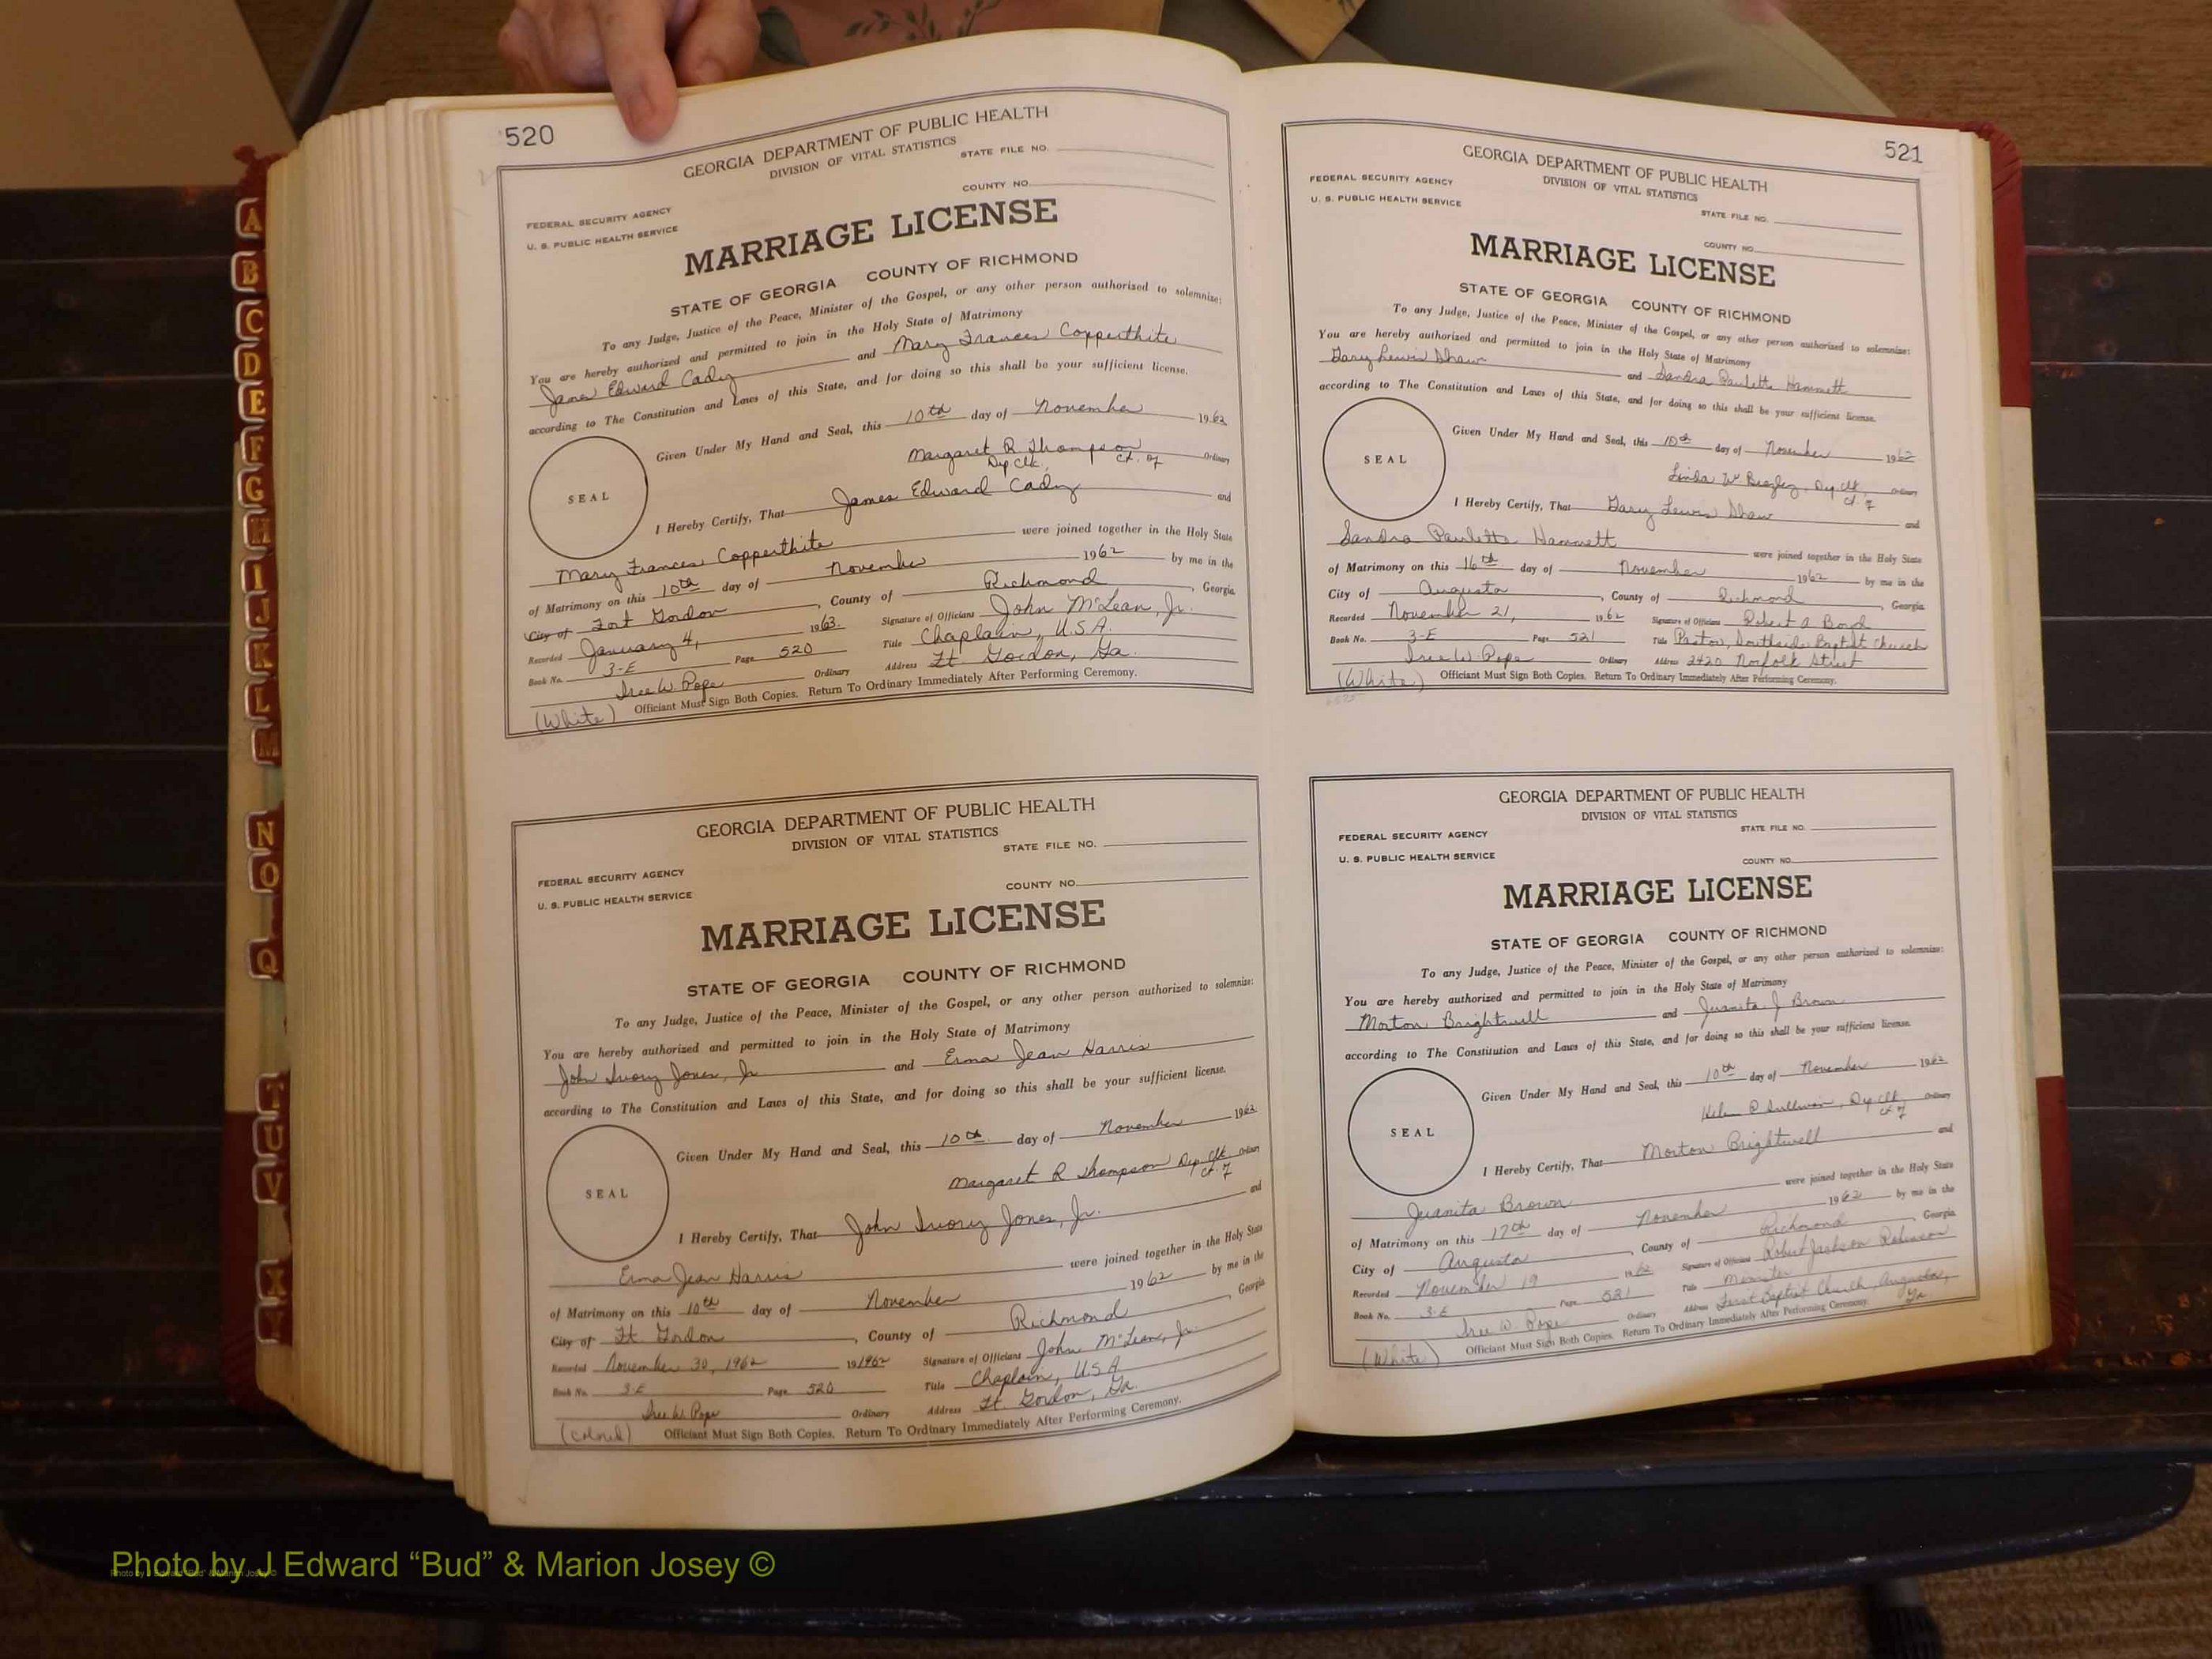 520
GEORGIA DEPARTMENT OF PUBLIC HEALTH
DIVISION OF VITAL STATISTICS
STATE FILE NO.
COUNTY NO.
FEDERAL SECURITY AGENCY
U. S. PUBLIC HEALTH SERVICE
MARRIAGE LICENSE
STATE OF GEORGIA COUNTY OF RICHMOND
To any Judge, Justice of the Peace, Minister of the Gospel, or any other person authorized to solemnize:
You are hereby authorized and permitted to join in the Holy State of Matrimony
James Edward Cady and Mary Frances Copperthite
according to The Constitution and Laws of this State, and for doing so this shall be your sufficient license.
Given Under My Hand and Seal, this 10th day of November 1962
Margaret R Thompson Ordinary
Dep Clk, Ct. of
SEAL
I Hereby Certify, That James Edward Cady and
Mary Frances Copperthite were joined together in the Holy State
of Matrimony on this 10th day of November 1962 by me in the
City of Fort Gordon, County of Richmond, Georgia
Recorded January 4, 1963. Signature of Officians John McLean, Jr.
Book No. 3-E Page 520 Title Chaplain, U.S.A.
Iree W. Pope Ordinary Address Ft Gordon, Ga.
(White) Officiant Must Sign Both Copies. Return To Ordinary Immediately After Performing Ceremony.
GEORGIA DEPARTMENT OF PUBLIC HEALTH
DIVISION OF VITAL STATISTICS
STATE FILE NO.
COUNTY NO.
FEDERAL SECURITY AGENCY
U. S. PUBLIC HEALTH SERVICE
MARRIAGE LICENSE
STATE OF GEORGIA COUNTY OF RICHMOND
To any Judge, Justice of the Peace, Minister of the Gospel, or any other person authorized to solemnize:
You are hereby authorized and permitted to join in the Holy State of Matrimony
John Ivory Jones, Jr and Erma Jean Harris
according to The Constitution and Laws of this State, and for doing so this shall be your sufficient license.
Given Under My Hand and Seal, this 10th day of November 1962
Margaret R Thompson Dep Clk Ordinary
Ct. of
SEAL
I Hereby Certify, That John Ivory Jones, Jr. and
Erma Jean Harris were joined together in the Holy State
of Matrimony on this 10th day of November 1962 by me in the
City of Ft Gordon, County of Richmond Georgia
Recorded November 30, 1962 191962 Signature of Officians John McLean, Jr.
Book No. 3-E Page 520 Title Chaplain, USA
Iree W. Pope Ordinary Address Ft Gordon, Ga.
(Colored) Officiant Must Sign Both Copies. Return To Ordinary Immediately After Performing Ceremony.
521
GEORGIA DEPARTMENT OF PUBLIC HEALTH
DIVISION OF VITAL STATISTICS
FEDERAL SECURITY AGENCY
U. S. PUBLIC HEALTH SERVICE
STATE FILE NO.
COUNTY NO.
MARRIAGE LICENSE
STATE OF GEORGIA COUNTY OF RICHMOND
To any Judge, Justice of the Peace, Minister of the Gospel, or any other person authorized to solemnize:
You are hereby authorized and permitted to join in the Holy State of Matrimony
Gary Lewis Shaw and Sandra Paulette Hammett
according to The Constitution and Laws of this State, and for doing so this shall be your sufficient license.
Given Under My Hand and Seal, this 10th day of November 1962
Linda W Beazley, Dep Clk Ordinary
Ct. of
SEAL
I Hereby Certify, That Gary Lewis Shaw and
Sandra Paulette Hammett were joined together in the Holy State
of Matrimony on this 16th day of November 1962 by me in the
City of Augusta, County of Richmond, Georgia
Recorded November 21, 1962 Signature of Officians Robert A Boyd
Book No. 3-E Page 521 Title Pastor, Southside Baptist Church
Iree W. Pope Ordinary Address 2420 Norfolk Street
(White) Officiant Must Sign Both Copies. Return To Ordinary Immediately After Performing Ceremony.
GEORGIA DEPARTMENT OF PUBLIC HEALTH
DIVISION OF VITAL STATISTICS
STATE FILE NO.
FEDERAL SECURITY AGENCY
U. S. PUBLIC HEALTH SERVICE
COUNTY NO.
MARRIAGE LICENSE
STATE OF GEORGIA COUNTY OF RICHMOND
To any Judge, Justice of the Peace, Minister of the Gospel, or any other person authorized to solemnize:
You are hereby authorized and permitted to join in the Holy State of Matrimony
Morton Brightwell and Juanita J Brown
according to The Constitution and Laws of this State, and for doing so this shall be your sufficient license.
Given Under My Hand and Seal, this 10th day of November 1962
Helen P Sullivan, Dep Clk Ordinary
Ct. of
SEAL
I Hereby Certify, That Morton Brightwell and
Juanita Brown were joined together in the Holy State
of Matrimony on this 17th day of November 1962 by me in the
City of Augusta, County of Richmond, Georgia
Recorded November 19 1962 Signature of Officians Robert Jackson Robinson
Book No. 3-E Page 521 Title Minister
Iree W. Pope Ordinary Address First Baptist Church, Augusta, Ga
(White) Officiant Must Sign Both Copies. Return To Ordinary Immediately After Performing Ceremony.
A
B
C
D
E
F
G
H
I
J
K
L
M
N
O
Q
T
U
V
X
Y
Photo by J Edward “Bud” & Marion Josey ©
Photo by J Edward "Bud" & Marion Josey ©